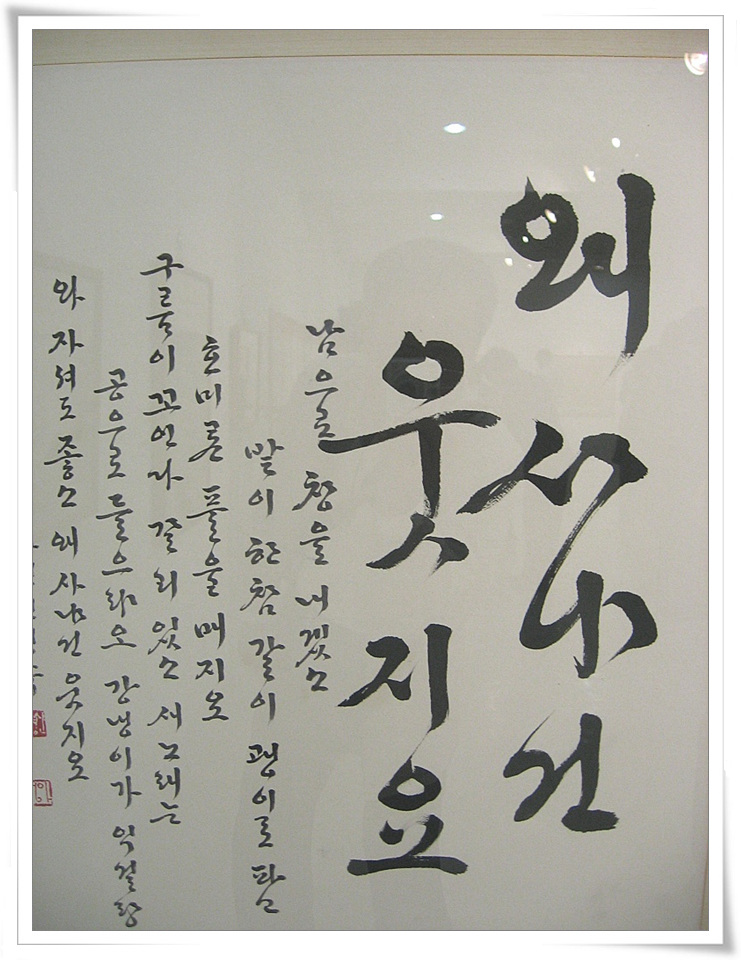 왜 사냐건
웃지요
남으로 창을 내겠소
밭이 한참 갈이 괭이로 파고
호미론 풀을 매지오
구름이 꼬인다 갈 리 있소 새 노래는
공으로 들으랴오 강냉이가 익걸랑
와 자셔도 좋소 왜 사냐건 웃지오